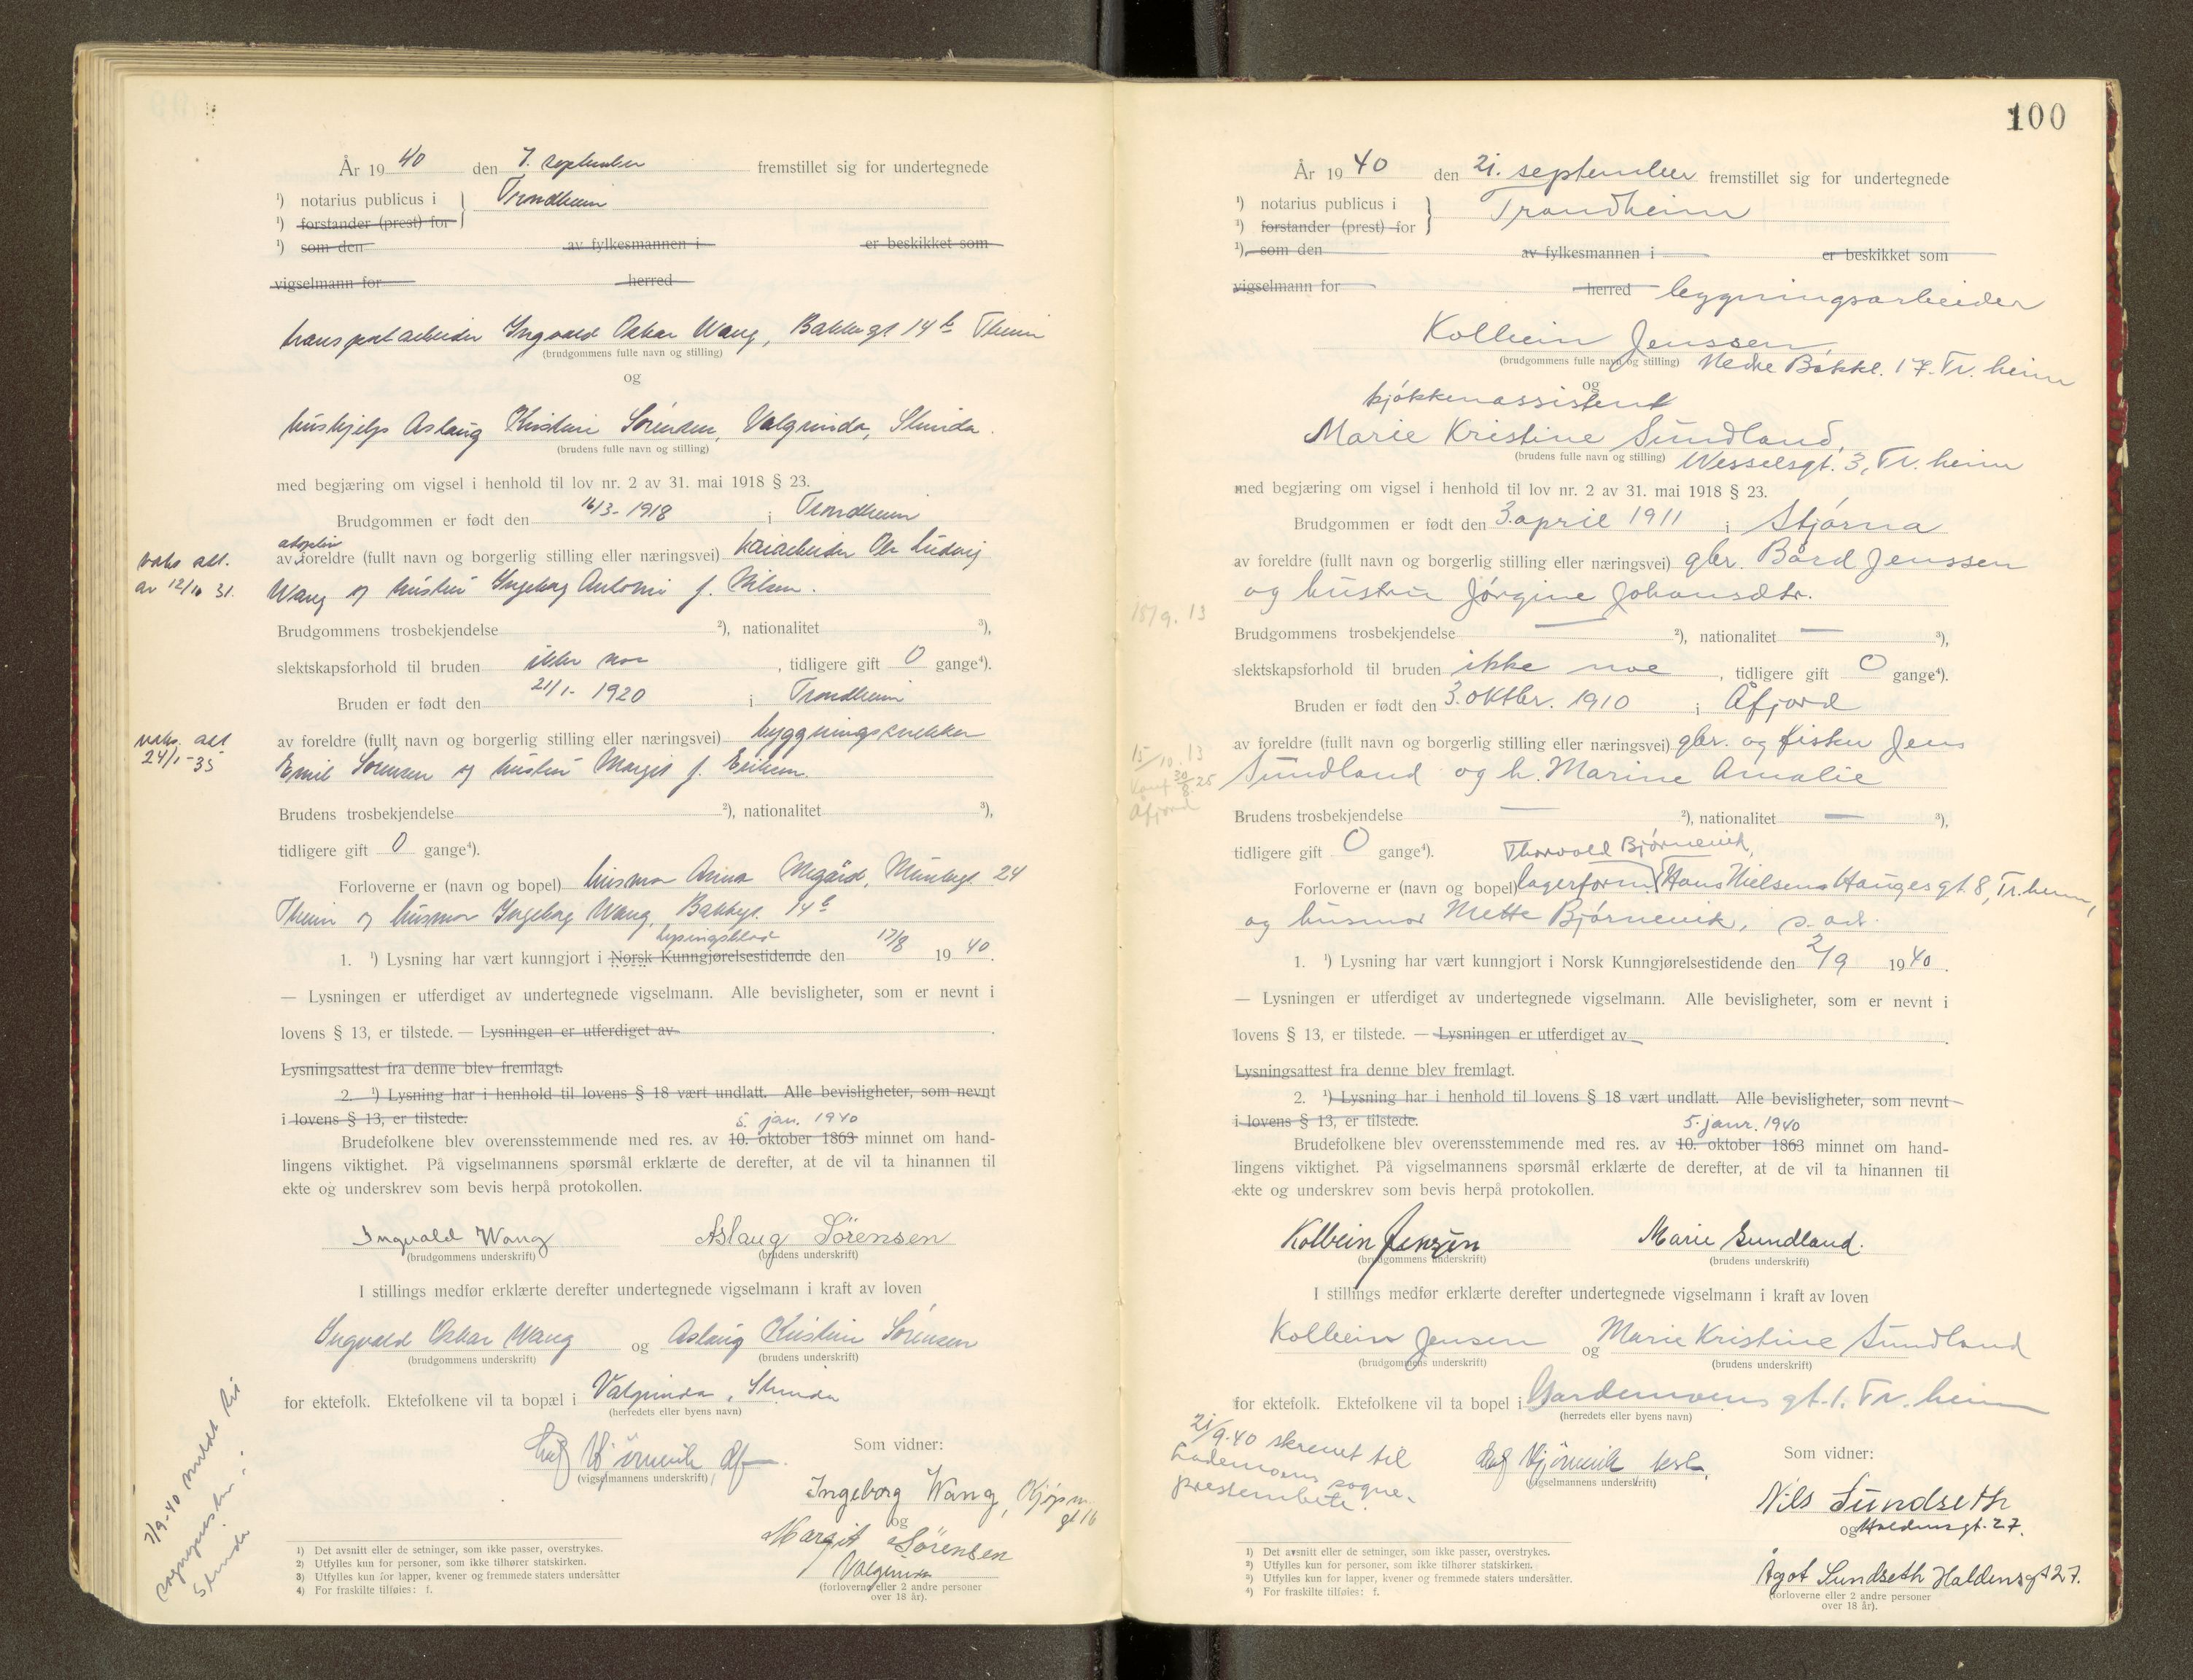 År 1940 den 7. september fremstillet sig for undertegnede
¹) notarius publicus i } Trondheim
¹) forstander (prest) for
¹) som den av fylkesmannen i er beskikket som
vigselmann for herred
transportarbeider Ingvald Oskar Wang, Bakkegt 14 b Theim
(brudgommens fulle navn og stilling)
og
hushjelp Aslaug Kristine Sørensen, Valgrinda, Strinda.
(brudens fulle navn og stilling)
med begjæring om vigsel i henhold til lov nr. 2 av 31. mai 1918 § 23.
Brudgommen er født den 16/3-1918 i Trondheim
adoptiv
vaks. att. av foreldre (fullt navn og borgerlig stilling eller næringsvei) kaiarbeider Ole Ludvig
av 12/10 31. Wang og hustru Ingeborg Antonie f. Nilsen.
Brudgommens trosbekjendelse ²), nationalitet ³),
slektskapsforhold til bruden ikke noe, tidligere gift 0 gange⁴).
Bruden er født den 21/1-1920 i Trondheim
vaks. att av foreldre (fullt navn og borgerlig stilling eller næringsvei) byggningssnekker
24/1-35 Emil Sørensen og hustru Margit f. Eriksen.
Brudens trosbekjendelse ²), nationalitet ³),
tidligere gift 0 gange⁴).
Forloverne er (navn og bopel) husmor Anna Negård, Munkegt. 24
Theim og husmor Ingeborg Wang, Bakkegt. 14 b
lysingsblad
1. ¹) Lysning har vært kunngjort i Norsk Kunngjørelsestidende den 17/8 1940.
— Lysningen er utferdiget av undertegnede vigselmann. Alle bevisligheter, som er nevnt i
lovens § 13, er tilstede. — Lysningen er utferdiget av .
Lysningsattest fra denne blev fremlagt.
2. ¹) Lysning har i henhold til lovens § 18 vært undlatt. Alle bevisligheter, som nevnt
i lovens § 13, er tilstede.
5. jan. 1940
Brudefolkene blev overensstemmende med res. av 10. oktober 1863 minnet om hand-
lingens viktighet. På vigselmannens spørsmål erklærte de derefter, at de vil ta hinannen til
ekte og underskrev som bevis herpå protokollen.
Ingvald Wang Aslaug Sørensen
(brudgommens underskrift) (brudens underskrift)
I stillings medfør erklærte derefter undertegnede vigselmann i kraft av loven
Ingvald Oskar Wang og Aslaug Kristine Sørensen
(brudgommens underskrift) (brudens underskrift)
for ektefolk. Ektefolkene vil ta bopæl i Valgrinda, Strinda
(herredets eller byens navn)
Som vidner:
(vigselmannens underskrift)
Ingeborg Wang, Kjøpm.
gt 16
og
Margit Sørensen
Valgrinda
(forloverne eller 2 andre personer
over 18 år).
7/9-40 meldt til
sognepresten i
Strinda
1) Det avsnitt eller de setninger, som ikke passer, overstrykes.
2) Utfylles kun for personer, som ikke tilhører statskirken.
3) Utfylles kun for lapper, kvener og fremmede staters undersåtter
4) For fraskilte tilføies: f.
100
År 1940 den 21. september fremstillet sig for undertegnede
¹) notarius publicus i } Trondheim
¹) forstander (prest) for
¹) som den av fylkesmannen i er beskikket som
vigselmann for herred byggningsarbeider
Kolbein Jenssen,
(brudgommens fulle navn og stilling) Nedre Bakkl. 17. Tr.heim
og
kjøkkenassistent
Marie Kristine Sundland,
(brudens fulle navn og stilling) Wesselsgt. 3, Tr.heim
med begjæring om vigsel i henhold til lov nr. 2 av 31. mai 1918 § 23.
Brudgommen er født den 3. april 1911 i Stjørna
av foreldre (fullt navn og borgerlig stilling eller næringsvei) gbr. Bård Jenssen
og hustru Jørgine Johansdtr.
15/9. 13
Brudgommens trosbekjendelse — ²), nationalitet — ³),
slektskapsforhold til bruden ikke noe, tidligere gift 0 gange⁴).
Bruden er født den 3. oktbr. 1910 i Åfjord
av foreldre (fullt navn og borgerlig stilling eller næringsvei) gbr. og fisker Jens
15/10. 13 Sundland og h. Marine Amalie
konf 30/8 25
Åfjord
Brudens trosbekjendelse — ²), nationalitet — ³),
tidligere gift 0 gange⁴). Thorvald Bjørnevik,
Forloverne er (navn og bopel) lagerform. Hans Nielsens Hauges gt 8, Tr.heim,
og husmor Mette Bjørnevik, s. ad.
1. ¹) Lysning har vært kunngjort i Norsk Kunngjørelsestidende den 2/9 1940.
— Lysningen er utferdiget av undertegnede vigselmann. Alle bevisligheter, som er nevnt i
lovens § 13, er tilstede. — Lysningen er utferdiget av .
Lysningsattest fra denne blev fremlagt.
2. ¹) Lysning har i henhold til lovens § 18 vært undlatt. Alle bevisligheter, som nevnt
i lovens § 13, er tilstede.
5. janr. 1940
Brudefolkene blev overensstemmende med res. av 10. oktober 1863 minnet om hand-
lingens viktighet. På vigselmannens spørsmål erklærte de derefter, at de vil ta hinannen til
ekte og underskrev som bevis herpå protokollen.
Kolbein Jensen Marie Sundland.
(brudgommens underskrift) (brudens underskrift)
I stillings medfør erklærte derefter undertegnede vigselmann i kraft av loven
Kolbein Jensen og Marie Kristine Sundland
(brudgommens underskrift) (brudens underskrift)
for ektefolk. Ektefolkene vil ta bopel i Gardemoens gt. 1. Tr.heim
(herredets eller byens navn)
21/9-40 skrevet til
Lademoens sogne-
prestembete.
Som vidner:
(vigselmannens underskrift)
Nils Sundseth
og Haldens gt. 27.
Ågot Sundseth Haldensgt 27.
(forloverne eller 2 andre personer
over 18 år).
1) Det avsnitt eller de setninger, som ikke passer, overstrykes.
2) Utfylles kun for personer, som ikke tilhører statskirken.
3) Utfylles kun for lapper, kvener og fremmede staters undersåtter.
4) For fraskilte tilføies: f.